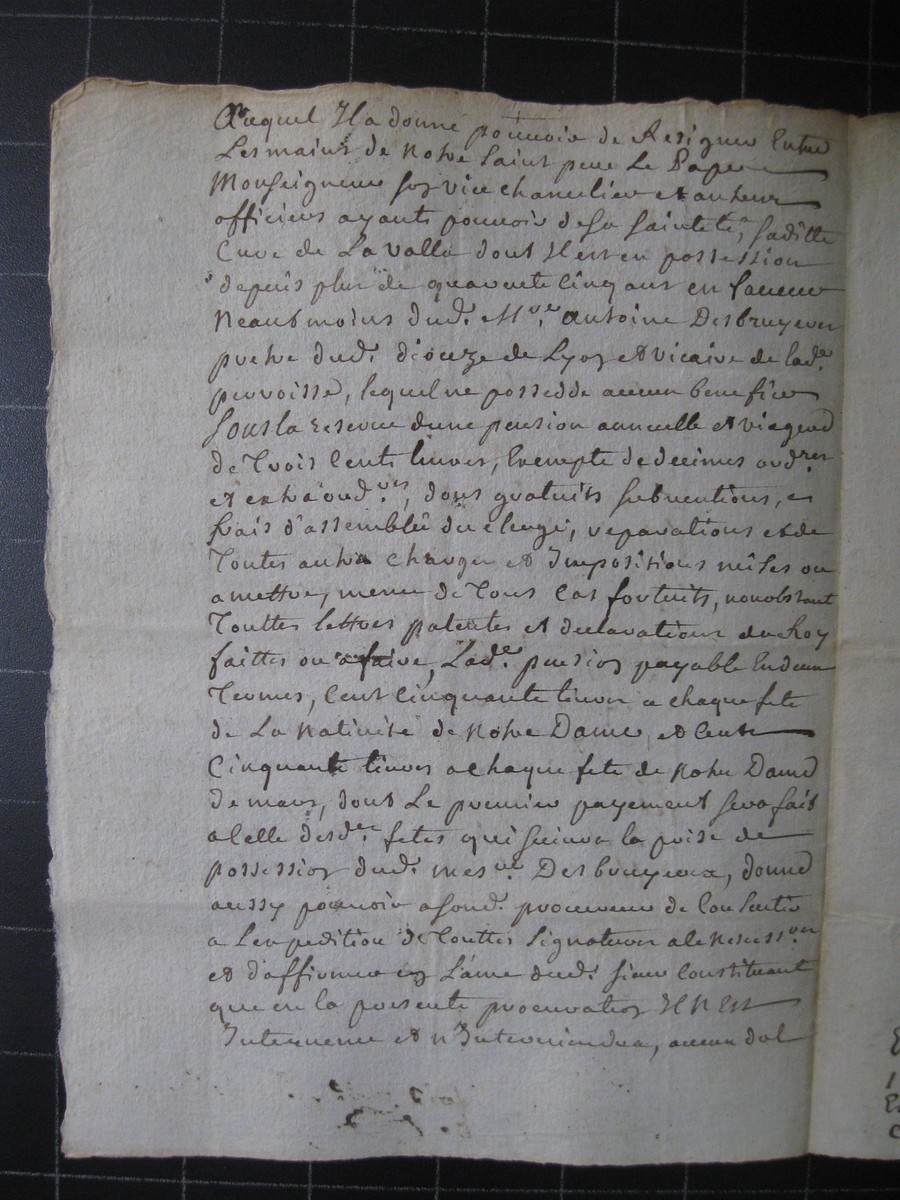 Auquel Il a donné pouvoir de Resigner Entre
Les mains de Notre Saint pere Le Pape
Monseigneur son vice chancelier et autres
officiers ayants pouvoir de sa sainteté, saditte
Cure de La valla dont Il est en possession
depuis plus de quarante Cinq ans en faveur
Neaubmoins dud. Mre. antoine Desbruyeres
pretre dud. dioceze de Lyon et vicaire de lade.
parroisse, lequel ne possedde aucun benefice
Sous la reserve dune pension annuelle et viagere
de Trois Cents livres, Exempte de decimes ordres
et extraordres, dons gratuits subventions, et
frais d'assemblée du clergé, reparations et de
Toutes autre charges et Impositions mises ou
a mettre, meme de Tous Cas fortuits, nonobstant
Touttes lettres patentes et declarations du Roy
faittes ou a faire, Lade. pension payable En deux
Termes, Cent Cinquante livres a chaque fete
de La Nativité de Notre Dame, et Cents
Cinquante livres a chaque fete de Notre Dame
de mars, dont Le premier payement sera fait
a Celle desdes fetes qui suivra la prise de
possession dud. mesre. Desbruyeres, donne
aussy pouvoir a sond. procureur de Consentir
a Lexpedition de Touttes Signatures a Ce Necessres
et d'affirmer en L'ame dud. sieur Constituant
que en la presente procuration Il N Est
Intervenu et n'Interviendra, aucun dol